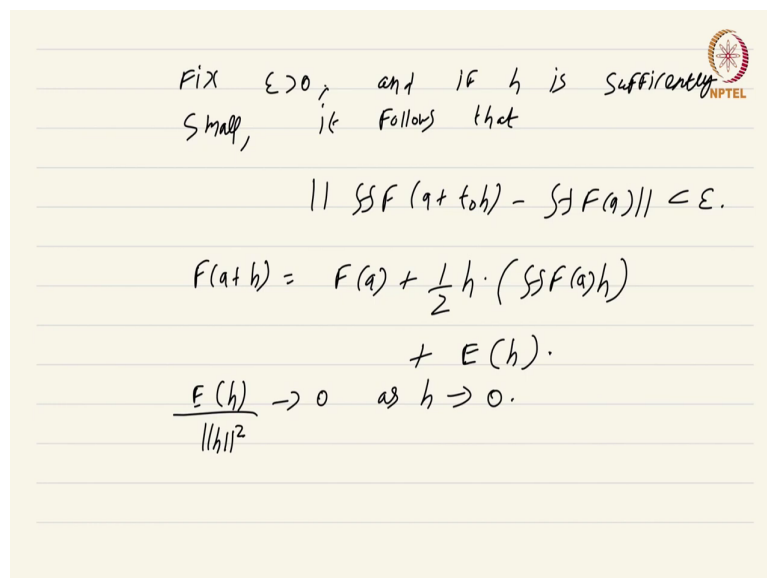 Fix ε>0, and if h is sufficently
NPTEL
small, it follows that
|| ∂∂F(a+t₀h) - ∂∂F(a)|| < ε.
F(a+h) = F(a) + 1/2 h·(∂∂F(a)h)
+ E(h).
E(h)/||h||² → 0 as h → 0.